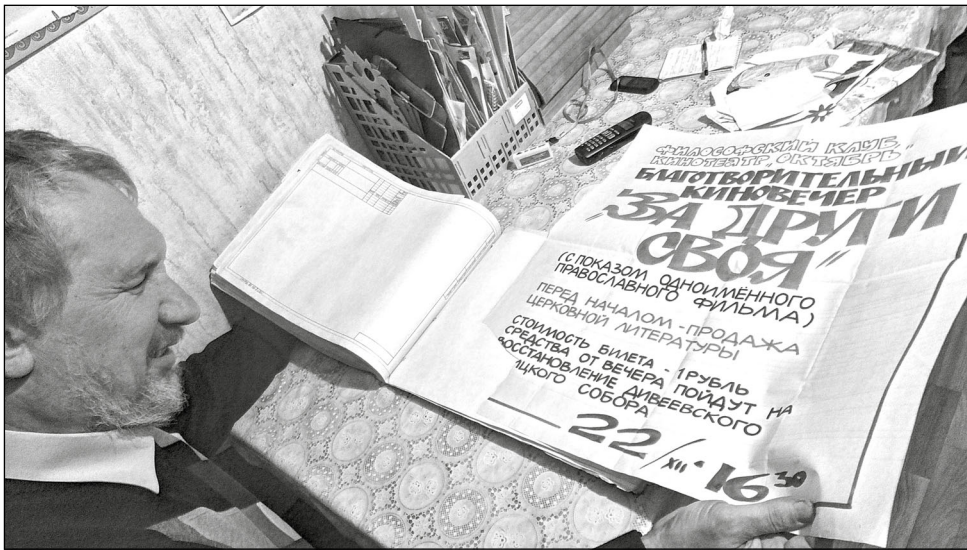 ФИЛОСОФСКИЙ КЛУБ,
КИНОТЕАТР „ОКТЯБРЬ"
БЛАГОТВОРИТЕЛЬНЫЙ
КИНОВЕЧЕР
„ЗА ДРУГИ
СВОЯ"
(С ПОКАЗОМ ОДНОИМЁННОГО
ПРАВОСЛАВНОГО ФИЛЬМА)
ПЕРЕД НАЧАЛОМ - ПРОДАЖА
ЦЕРКОВНОЙ ЛИТЕРАТУРЫ
СТОИМОСТЬ БИЛЕТА - 1 РУБЛЬ
СРЕДСТВА ОТ ВЕЧЕРА ПОЙДУТ НА
ВОССТАНОВЛЕНИЕ ДИВЕЕВСКОГО
СОБОРА
22/XII 16 30